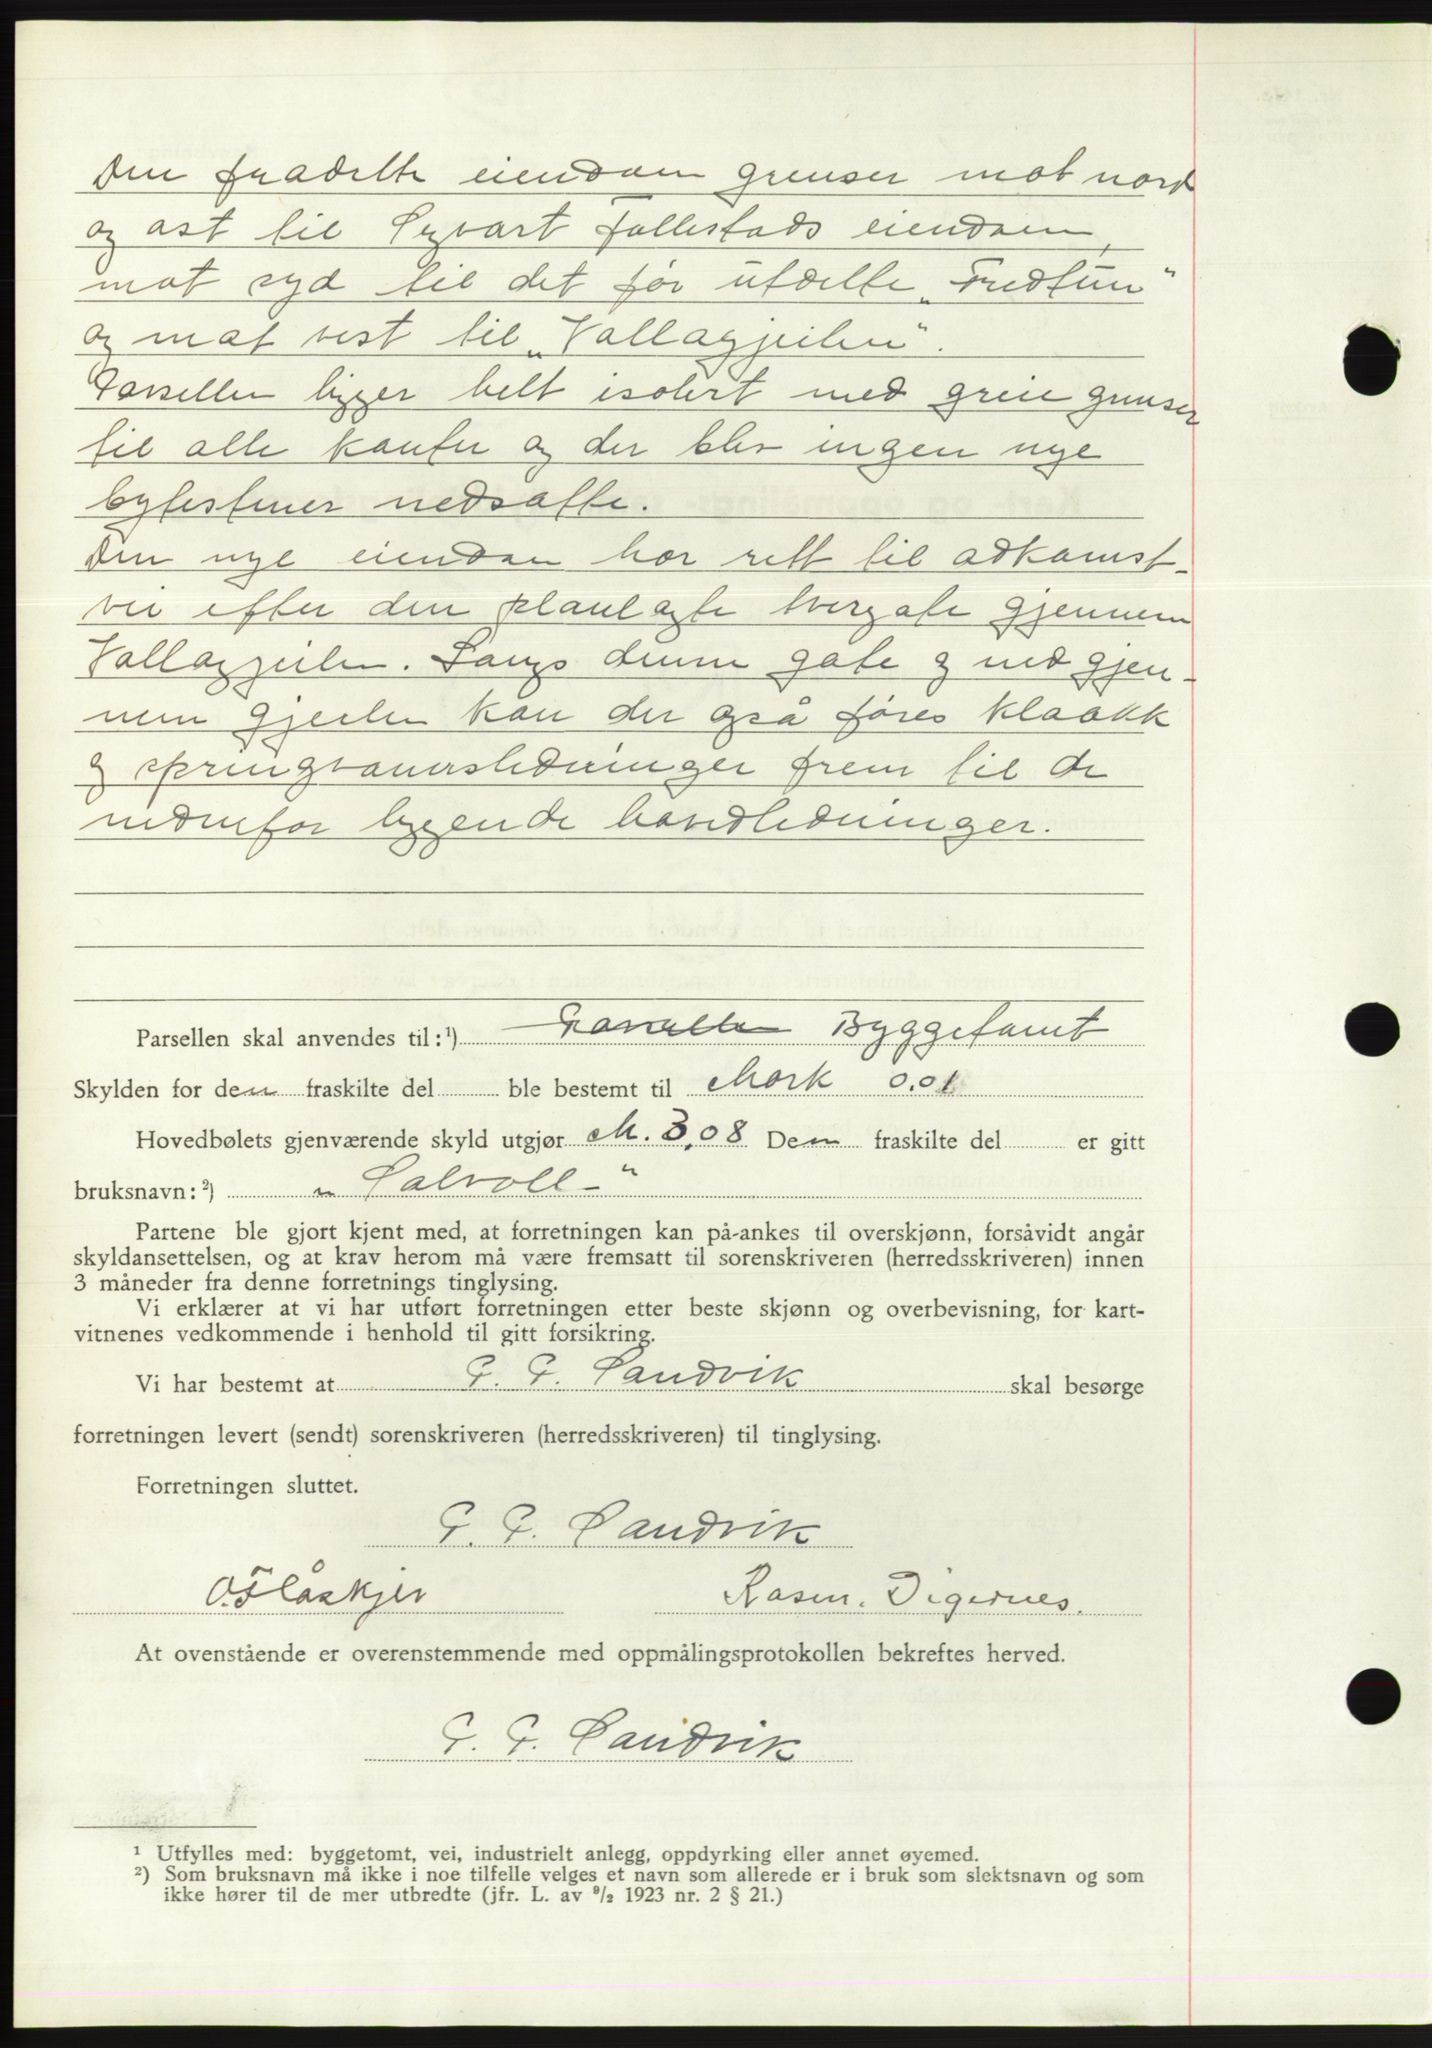 Den fradelte eiendom grenser mot nord
og øst til Syvart Follestads eiendom,
mot syd til det før utdelte „Fredtun"
og mot vest til „Vallagjeilen".
Parsellen ligger helt isolert med greie grenser
til alle kanter og der blev ingen nye
bytesteiner nedsatte.
Den nye eiendom har rett til adkomst-
vei efter den planlagte tvergate gjennem
Vallagjeilen. Langs denne gate og ned gjen-
nem gjeilen kan der også føres kloakk
og springvannsledninger frem til de
nedenfor liggende hovedledninger.
Parsellen skal anvendes til:¹) Parsellen Byggetomt
Skylden for den fraskilte del ble bestemt til Mark 0.01
Hovedbølets gjenværende skyld utgjør M. 3,08 Den fraskilte del er gitt
bruksnavn:²) „Solvoll"
Partene ble gjort kjent med, at forretningen kan på-ankes til overskjønn, forsåvidt angår
skyldansettelsen, og at krav herom må være fremsatt til sorenskriveren (herredsskriveren) innen
3 måneder fra denne forretnings tinglysing.
Vi erklærer at vi har utført forretningen etter beste skjønn og overbevisning, for kart-
vitnenes vedkommende i henhold til gitt forsikring.
Vi har bestemt at G. G. Sandvik skal besørge
forretningen levert (sendt) sorenskriveren (herredsskriveren) til tinglysing.
Forretningen sluttet.
G. G. Sandvik
O. Flåskjer Rasm. Digernes.
At ovenstående er overenstemmende med oppmålingsprotokollen bekreftes herved.
G. G. Sandvik
¹ Utfylles med: byggetomt, vei, industrielt anlegg, oppdyrking eller annet øyemed.
²) Som bruksnavn må ikke i noe tilfelle velges et navn som allerede er i bruk som slektsnavn og som
ikke hører til de mer utbredte (jfr. L. av ⁹/₂ 1923 nr. 2 § 21.)